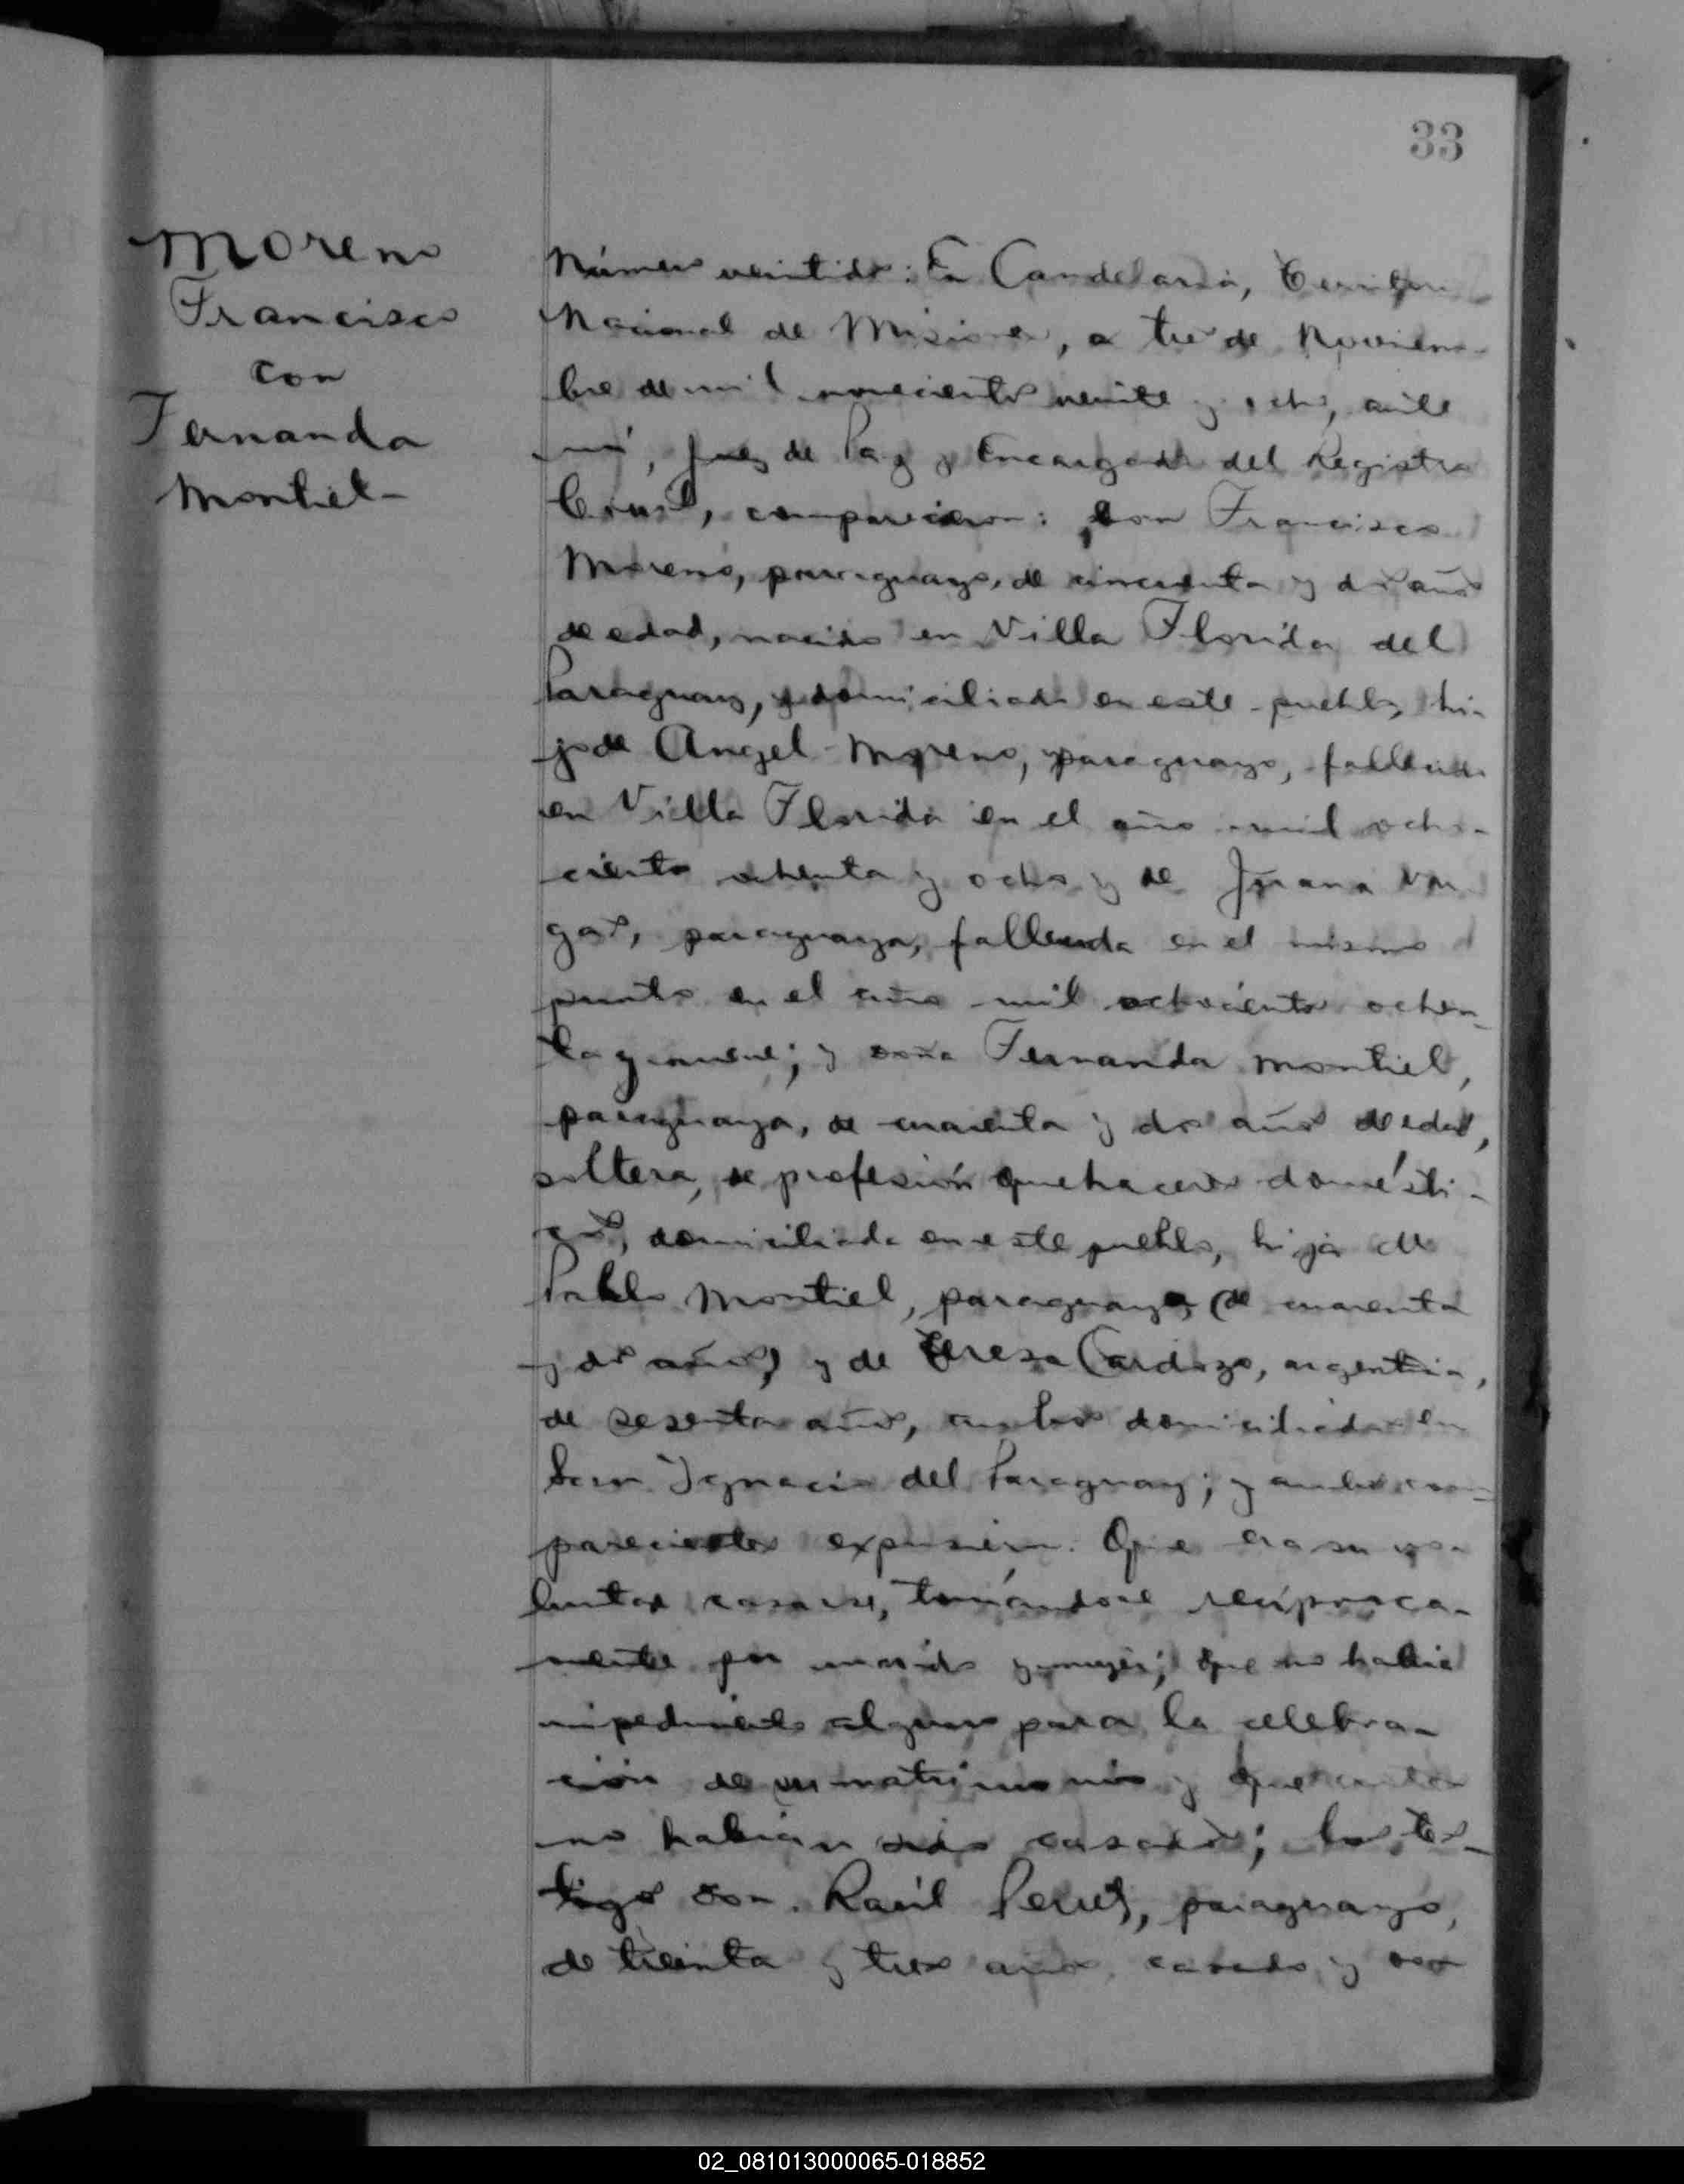 33
Moreno
Francisco
con
Fernanda
Montiel-
Número veintidos: En Candelaria, Territorio
Nacional de Misiones, a tres de Noviem-
bre de mil novecientos veinte y ocho, ante
mí, Juez de Paz y Encargado del Registro
Civil, comparecieron: don Francisco
Moreno, paraguayo, de cincuenta y dos años
de edad, nacido en Villa Florida del
Paraguay, y domiciliado en este pueblo, hi-
jo de Angel Moreno, paraguayo, fallecido
en Villa Florida en el año mil ocho-
cientos ochenta y ocho y de Juana Var
gas, paraguaya, fallecida en el mismo
punto en el año mil ochocientos ochen-
ta y nueve; y doña Fernanda Montiel,
paraguaya, de cuarenta y dos años de edad,
soltera, de profesión quehaceres domésti-
cos, domiciliada en este pueblo, hija de
Pablo Montiel, paraguayo, (de cuarenta
y dos años) y de Teresa Cardozo, argentina,
de sesenta años, ambos domiciliados en
San Ignacio del Paraguay; y ambos com-
parecientes expusieron: Que era su vo-
luntad casarse, tomándose recíproca-
mente por marido y mujer; que no había
impedimento alguno para la celebra-
ción de su matrimonio y que
no habían sido casados; los tes-
tigos don Raúl Perret, paraguayo,
de treinta y tres años, casado y don
02_081013000065-018852